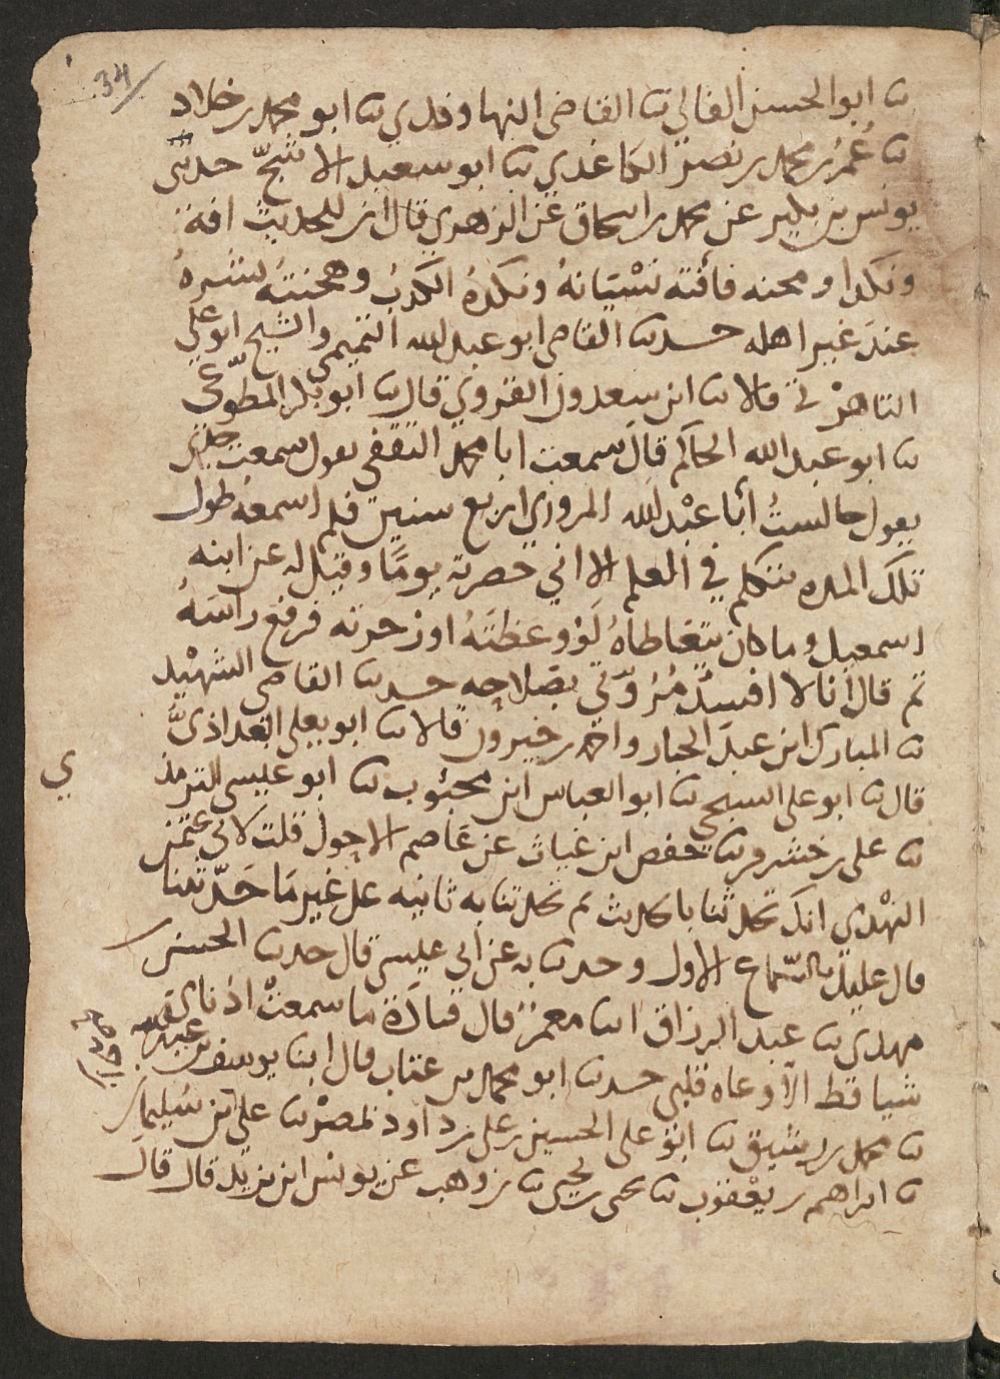 34
نا ابو الحسن الفالي نا القاضي النهاوندي نا ابو محمد بن خلاد
نا عُمَرُ بن محمد بن نصر الكاغدي نا ابو سعيد الاشجّ حدثني
يونس بن بكير عن محمد بن اسحاق عن الزهري قال ان للحديث افة
ونكدا و هجنه فافَته نسْيَانهُ ونكدُهُ الكذبُ وهجنتهُ نشرهُ
عندَ غير اهله حدثنا القاضي ابو عبد الله التميمي والشيخ ابو علي
التاهَرْتي قالا نا ابن سعدون القروي قال نا ابو بكر المطوّعي
نا ابو عبد الله الحاكم قال سمعت ابا محمد الثقفي يقول سمعت جدي
يقول جالستُ أبَا عبْد الله المروزي اربع سنين فلم اسمعهُ طول
تلك المده يتكلم في العلم الا اني حضرته يومًا وقيل له عن ابنه
اسمعيل وما كان يتعَاطاهُ لَوْ وعظتَهُ او زجرته فرفع راسَهُ
ثم قال أنا لا افسدُ مُرُوّتي بصَلاحِه حدثنا القاضي الشهيْد
نا المبارك ابن عبد الجبار واحمد بن خيرون قالا نا ابو يعلى البغداذيُّ
قال نا ابو علي السنجي نا ابو العباس ابن محبُوب نا ابو عيسى الترمذ
ي
نا علي بن خشرم نا حفص ابن غياث عن عَاصم الاحول قلت لابي عثمن
النهْدي انك تحدثنا بالحديث ثم تحدثنا به ثانيه على غير مَا حَدّثتنا
قال عليك بالسّماع الاول وحدثنا به عن ابي عيسى قال حدثنا الحسين بن
مهدي نا عبد الرزاق انا معمَر قال قتادَة ما سمعتْ اذناي
شيا قط الاّ وعاه قلبي حدثنا ابو محمد بن عتاب قال ابنا يوسف بن عبد الله
نا محمد بن رشيق نا ابو علي الحسين بن علي بن داود بمصْر نا علي بن سُليمان
نا ابراهيم بن يعْقوب نا يحي بن يحيى نا بن وهب عن يونس ابن يزيد قال قالَ